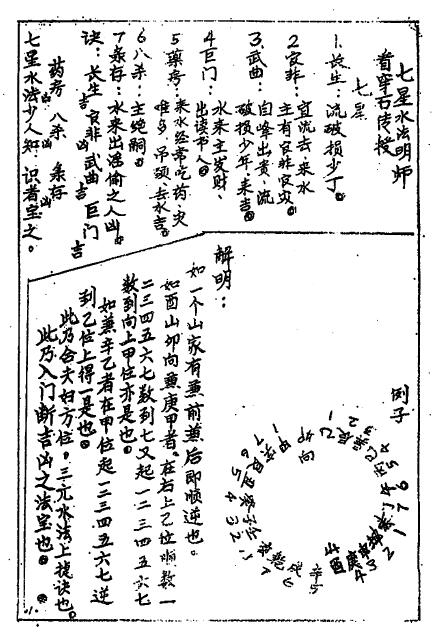 七星水法明师
曾穿石传授
七星
1.长生：流破损少丁。
2.官非：宜流去，来水
主有官非官灾。
3.武曲：自峰出贵，流
破损少年，来吉。
4.巨门：水来主发财、
出读书人。
5.药房：来水经常吃药、灾
难多，吊颈，去水吉。
6.八杀：主绝嗣。
7.禄存：水来出淫偷之人凶。
诀：长生吉 官非凶 武曲吉 巨门吉
药房凶 八杀凶 禄存凶
七星水法少人知，识者宝之。
解明：
如一个山家有兼前兼后即顺逆也。
如酉山卯向兼庚甲者，在右上乙位顺数一
二三四五六七数到七又起一二三四五六七
数到向上甲位亦是也。
如兼辛乙者在甲位起一二三四五六七逆
到乙位上得一是也。
此乃合夫妇方位，三元水法上接诀也。
此乃入门断吉凶之法宝也。
例子
卯向
山酉